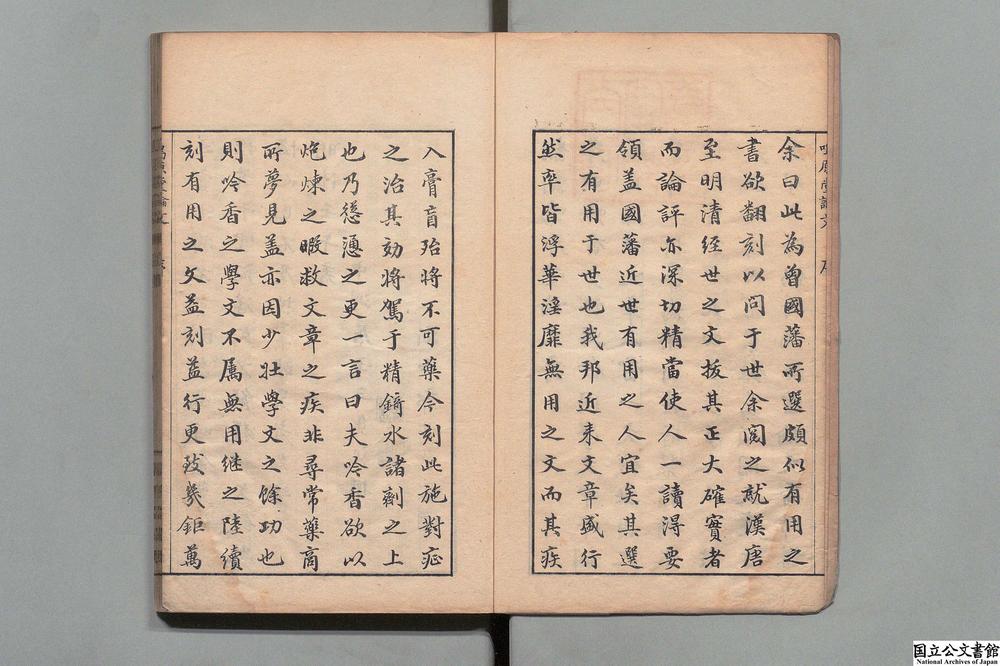 余曰此為曽國藩所選頗似有用之
書欲翻刻以問于世余閱之就漢唐
至明清経世之文拔其正大確實者
而論評亦深切精當使人一讀得要
領盖國藩近世有用之人宜矣其選
之有用于世也我邦近来文章盛行
然率皆浮華淫靡無用之文而其疾
入膏盲殆将不可藥今刻此施對疕
之治其効将駕于精錡水諸劑之上
也乃慫慂之更一言曰夫吟香欲以
炮煉之暇救文章之疾非尋常藥商
所夢見盖亦因少壮學文之餘功也
則吟香之學文不属無用継之陸續
刻有用之文益刻益行更致幾鉅萬
国立公文書館
National Archives of Japan